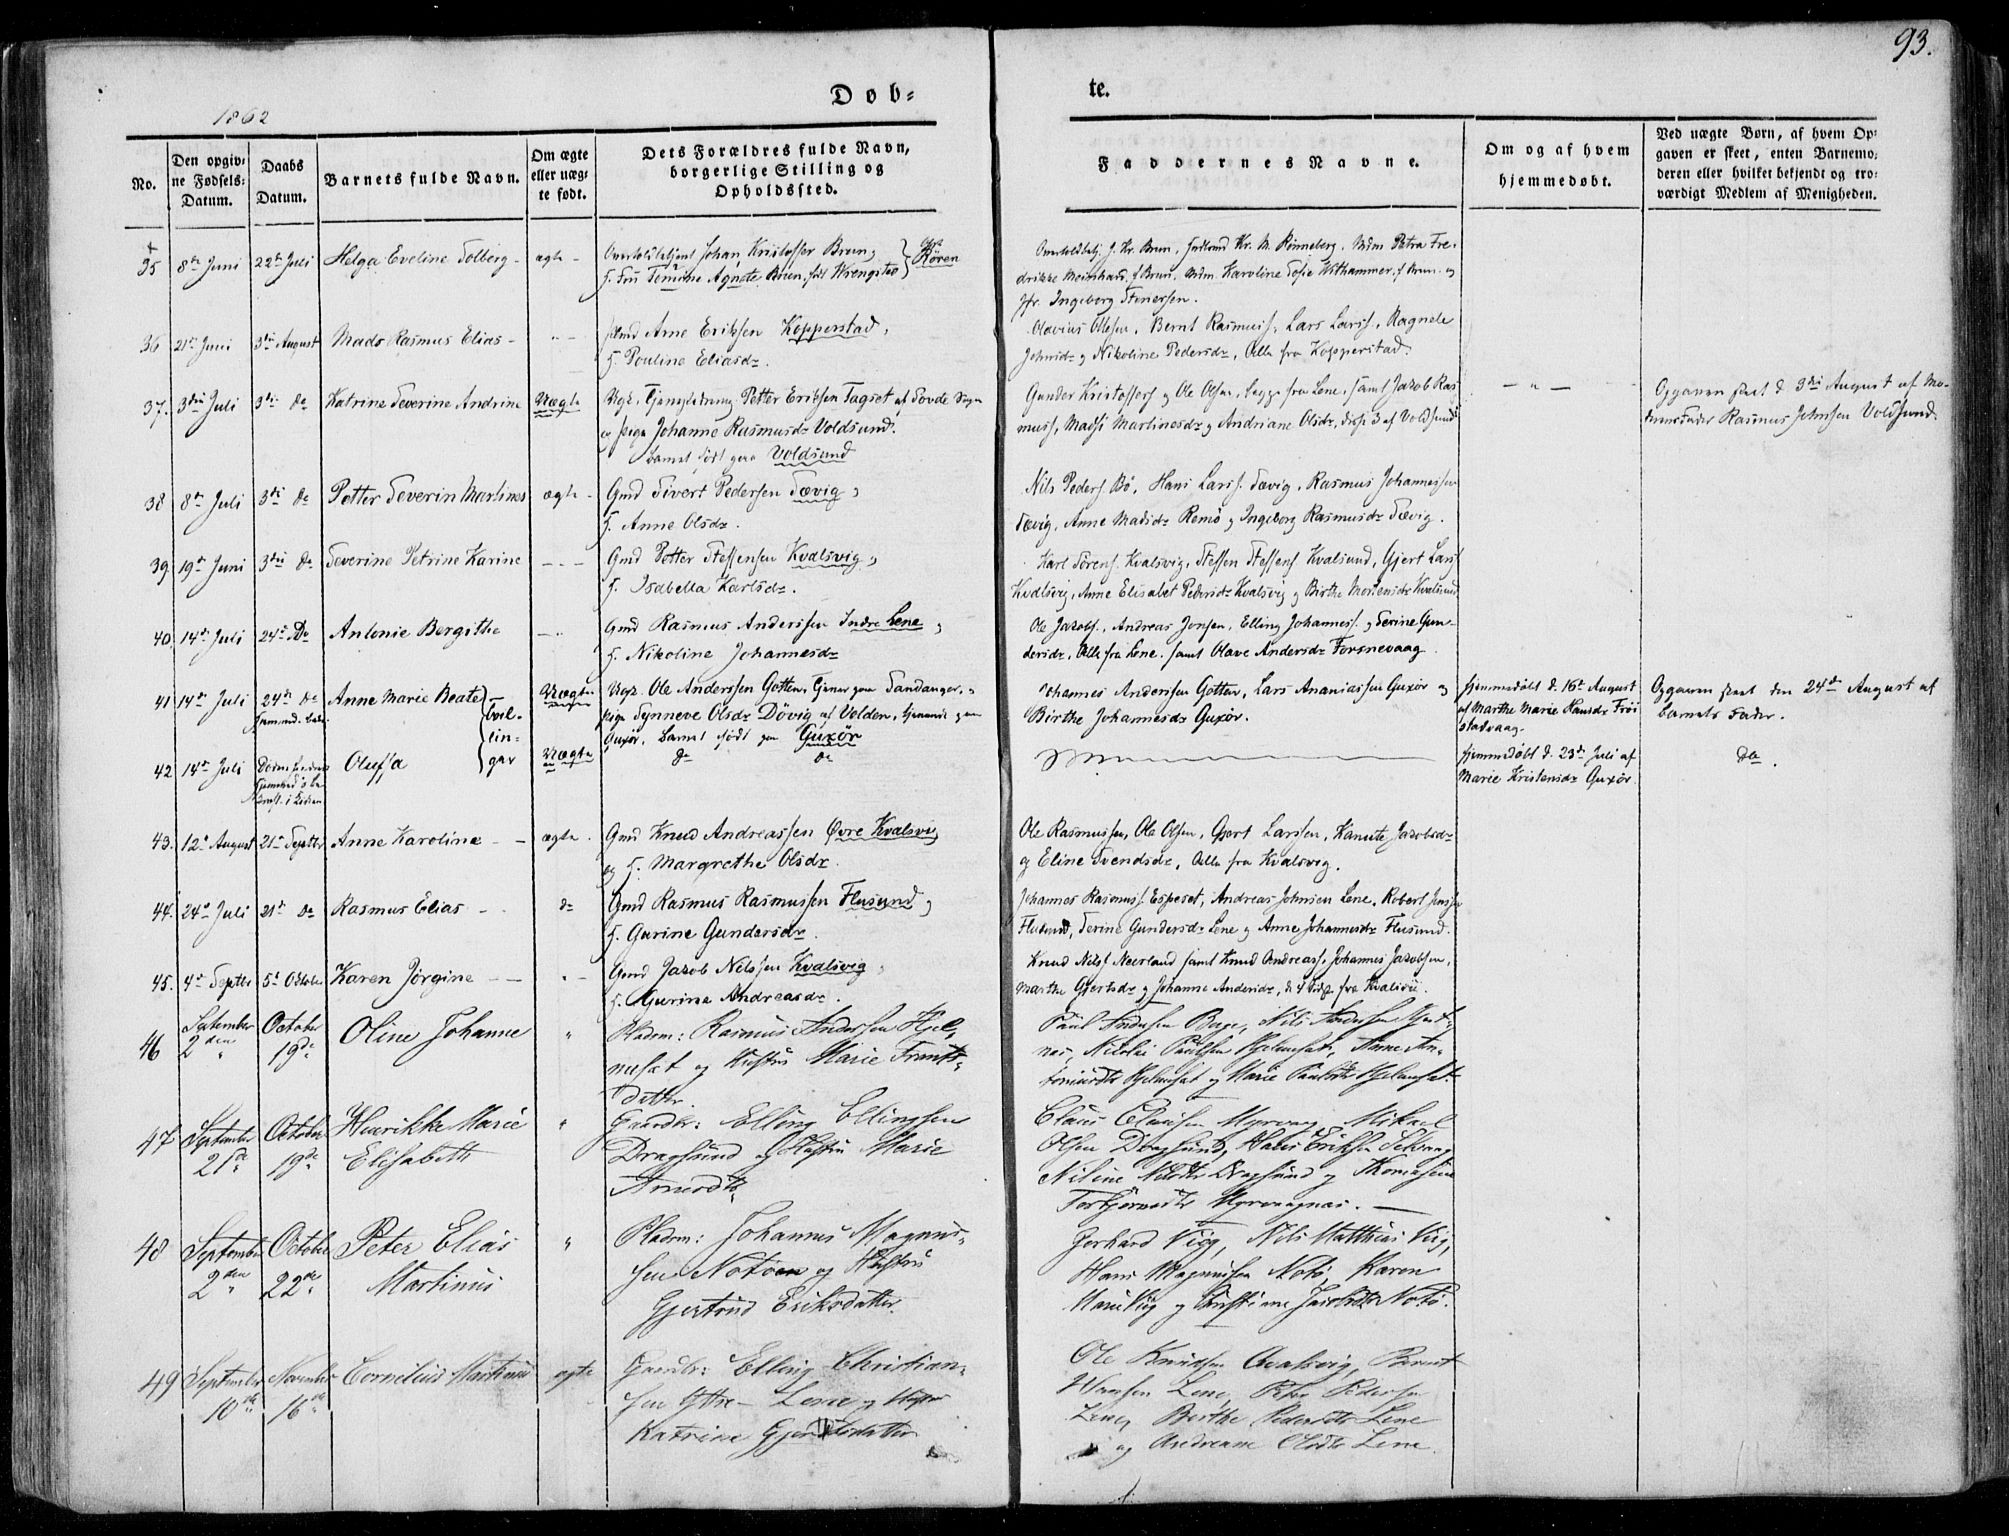 93.
Døb=
te.
1862
No.
Den opgiv=
ne Fødsels=
Datum.
Daabs
Datum.
Barnets fulde Navn.
Om ægte
eller uæg=
te født.
Dets Forældres fulde Navn,
borgerlige Stilling og
Opholdssted.
Faddernes Navne.
Om og af hvem
hjemmedøbt.
Ved uægte Børn, af hvem Op=
gaven er skeet, enten Barnemo=
deren eller hvilket bekjendt og tro=
værdigt Medlem af Menigheden.
35 8de Juni 22de Juli Helga Eveline Solberg - ægte - Johan Kristoffer Brun,
Agnete Brun, født Røren
J. Kr. Brun, Kr. M. Rønneberg, Mdm Petra Fre=
drikke Meinhard f. Brun, Mdm. Karoline Sofie Withammer f. Brun og
Jfr. Ingeborg Stenersen.
36 21de Juni 3die August Mads Rasmus Elias - Gmd Arne Eriksen Kopperstad,
H. Pouline Eliasdr.
Olavius Olesen, Bernt Rasmuss., Lars Larss., Ragnele
Johnsdr og Nikoline Pedersdr, Alle fra Kopperstad.
37. 3die Juli 3die do Katrine Severine Andrine Uægte Ungk. Petter Eriksen af Sovde Sogn
og Pige Johanne Rasmusdr Voldsund.
Barnet født paa Voldsund
Gunder Kristoffers. og Ole Olsen, begge fra Lene, samt Jakob Ras=
muss, Madsi Martinesdr og Andriane Olsdr, disse 3 af Voldsund
— " —
Opgaven skeet d. 3die August af Mo=
derens Fader Rasmus Johnsen Voldsund.
38 8de Juli 3die do Petter Severin Martines ægte - Gmd Sivert Pedersen Sævig,
H. Anne Olsdr.
Nils Peders. Bø, Hans Larss. Sævig, Rasmus Johannessen
Sævig, Anne Madsdr Remø og Ingeborg Rasmusdr Sævig.
39 19de Juni 3die do Severine Petrine Karine - - - Gmd Petter Steffensen Kvalsvig,
H. Isabella Karlsdr.
Karl Sørens. Kvalsvig, Steffen Steffens. Kvalsund, Gjert Lars
Kvalsvig, Anne Elisabet Pedersdr Kvalsvig og Birthe Mortensdr Kvalsund
40, 14de Juli 24de Do Antonie Bergithe Gmd Rasmus Anderssen Indre Lene,
H. Nikoline Johannesdr
Ole Jakobs., Andreas Jonsen, Elling Johanness. og Serine Gun=
dersdr, Alle fra Lene. samt Olave Andersdr Torsnevaag
41 14de Juli 24de do Anne Marie Beate Uægte Ungk. Ole Anderssen Gotten, tjener paa Sandanger,
Pige Synneve Olsdr Døvig af Volden, tjenende paa
Guxør, Barnet født paa Guxør
Johannes Anderssen Gotten, Lars Ananiassen Guxør og
Birthe Johannesdr Guxør.
hjemmedøbt d. 16de August
af Marthe Marie Hansdr Frøi
stadvaag.
Opgaven skeet den 24de August af
barnets Fader.
tvil=
lin=
gar
42 14de Juli Oluffa Uægte do do
hjemmedøbt d. 23de Juli af
Marie Kristensdr Guxør.
do.
43. 12te August 21de Septbr Anne Karoline - - ægte. Gmd Knud Andreassen Øvre Kvalsvig
og H. Margrethe Olsdr.
Ole Rasmussen, Ole Olsen, Gjert Larssen, Kanute Jakobsdr
og Eline Svendsdr, Alle fra Kvalsvig.
44. 24de Juli 21de do Rasmus Elias - - do Gmd Rasmus Rasmussen Flusund,
H. Gurine Gundersdr.
Johannes Rasmuss. Espeset, Andreas Johnsen Lene, Robert Jenssen
Flusund, Serine Gundersdr Lene og Anne Johannesdr Flusund.
45. 4de Septbr 5te Oktober Karen Jørgine - - Gmd Jakob Nilssen Kvalsvig,
H. Gurine Andreasdr.
Knud Nilss Neerland samt Knud Andreass., Johannes Jakobsen,
Marthe Gjertsdr og Johanne Andersdr, d. 4 sidste fra Kvalsvig.
46 September 2den October 19de Oline Johanne " Pladsm: Rasmus Andersen Hjel=
meset og Hustru Marie Frants=
datter.
Paul Andersen Berge, Nils
Nikolai Paulsen Hjelmeset, Anne An=
Hjelmeset og Marie Paulsdtr Hjelmeset.
47 September 21de October 19de Henrikke Marie
Elisabeth " Gaardbr: Elling Ellingsen
Dragsund og Hustru Marie
Arnesdtr
Claus Clausen Myrvaag, Mikael
Olsen Dragsund, Hans Eriksen
Niline Nilsdtr Dragsund og Thomasine
Torbjørnsdtr Myrvaagnæs. —
48 September 2den October 22de Peter Elias
Martinus " Pladsm: Johannes Magnus=
sen Notøen og Hustru
Gjertrud Eriksdatter.
Gerhard Vig, Nils Matthias Vig,
Hans Magnussen Notø, Karen
Marie Vig og Jacobsdtr Notø.
49 September 10de November 16de Cornelius Martinus ægte Gaardbr: Elling Christian=
sen Ytre- Lene og Hustru
Katrine
Ole Knudsen Qvalsvig, Bernt
Hansen Lene, Peter Pedersen
Lene, Berthe Pedersdtr Lene
og Andreane Olsdtr Lene.